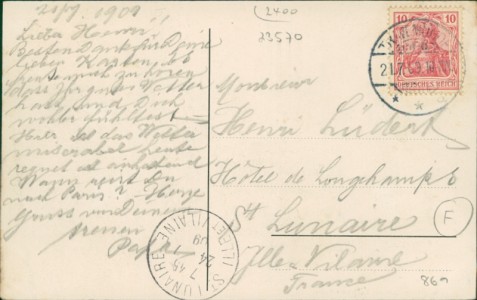 21/7. 1909
Lieber Henri!!
Besten Dank für Deine
lieben Karten, ich
zu hören
dass Ihr gutes Wetter
habt und Dich
wohler fühlst.
Hier ist das Wetter
miserabel, heute
regnet es anhaltend
Wann
nach Paris? Herzl
Gruss von Deinem
treuen
Papa
2400
22570
Monsieur
Henri Lüders
Hôtel de Longchamps
St Lunaire
Ille & Vilaine
France
F
86n
10 10
DEUTSCHES REICH
21.7.09
ST LUNAIRE
ILLE-ET-VILAINE
7 45
24
09